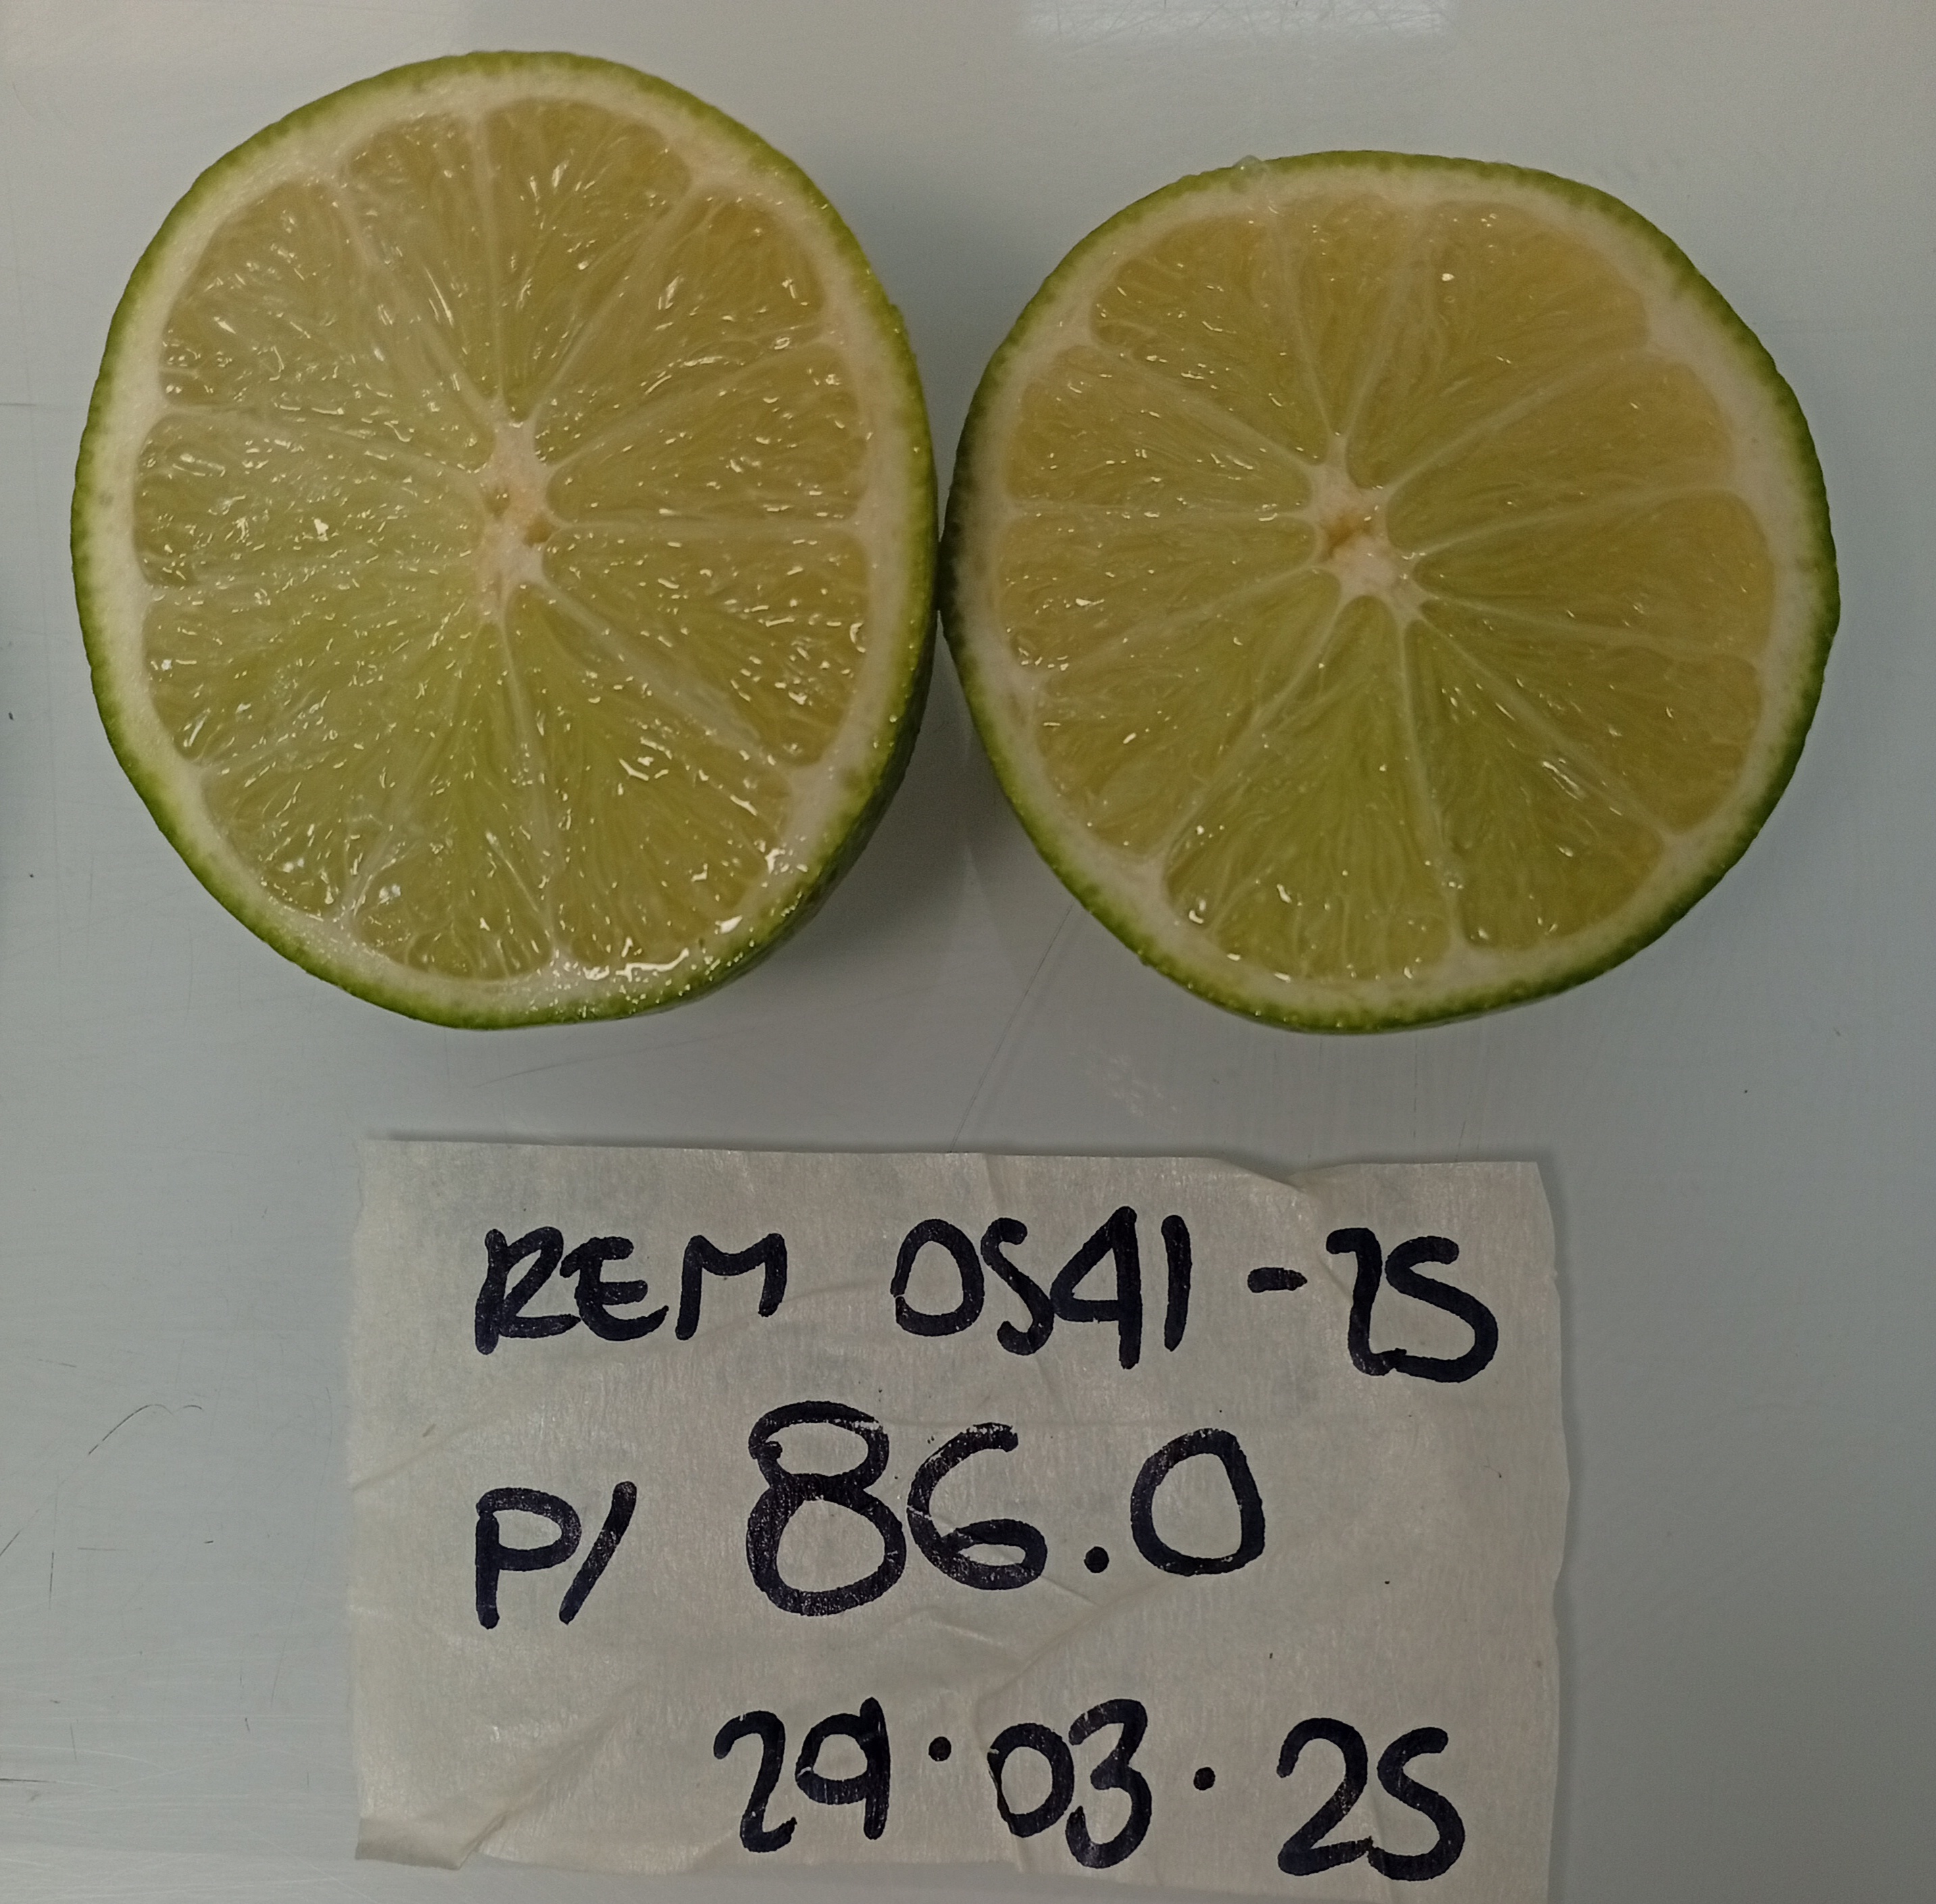 REM 0541-25
P/ 86.0
29.03.25